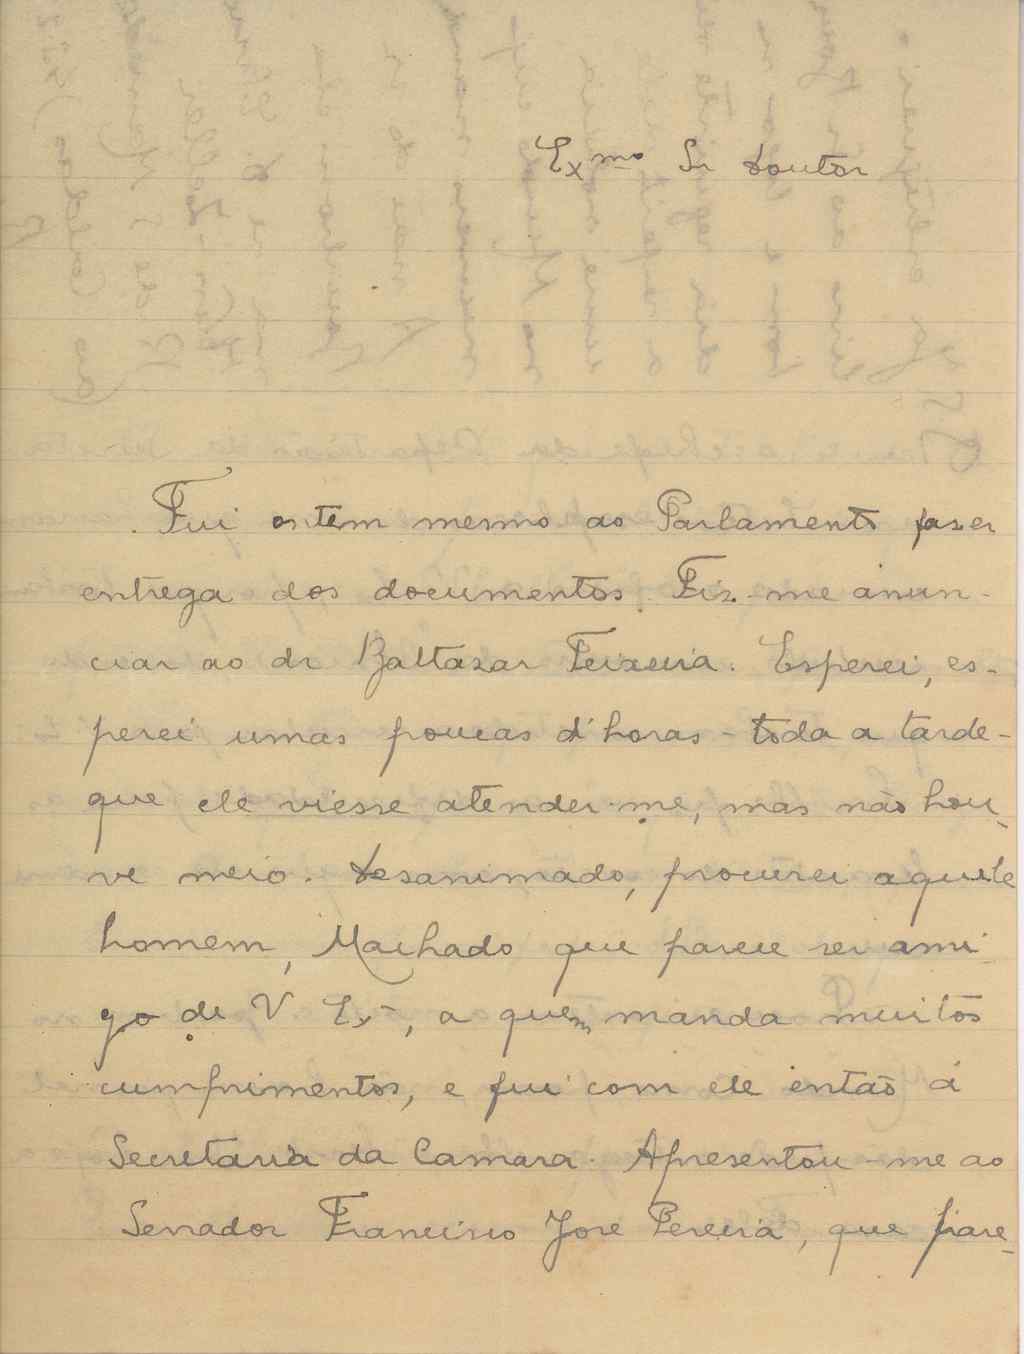 Exmo Sr Doutor
Fui ontem mesmo ao Parlamento fazer
entrega dos documentos. Fiz-me anun-
ciar ao dr Baltasar Teixeira. Esperei, es-
perei umas poucas d'horas - toda a tarde -
que ele viesse atender-me, mas não hou-
ve meio. Desanimado, procurei aquele
homem, Machado que parece ser ami-
go de V Exª, a quem manda muitos
cumprimentos, e fui com ele então á
Secretaria da Camara. Apresentou-me ao
Senador Francisco José Pereira, que pare-